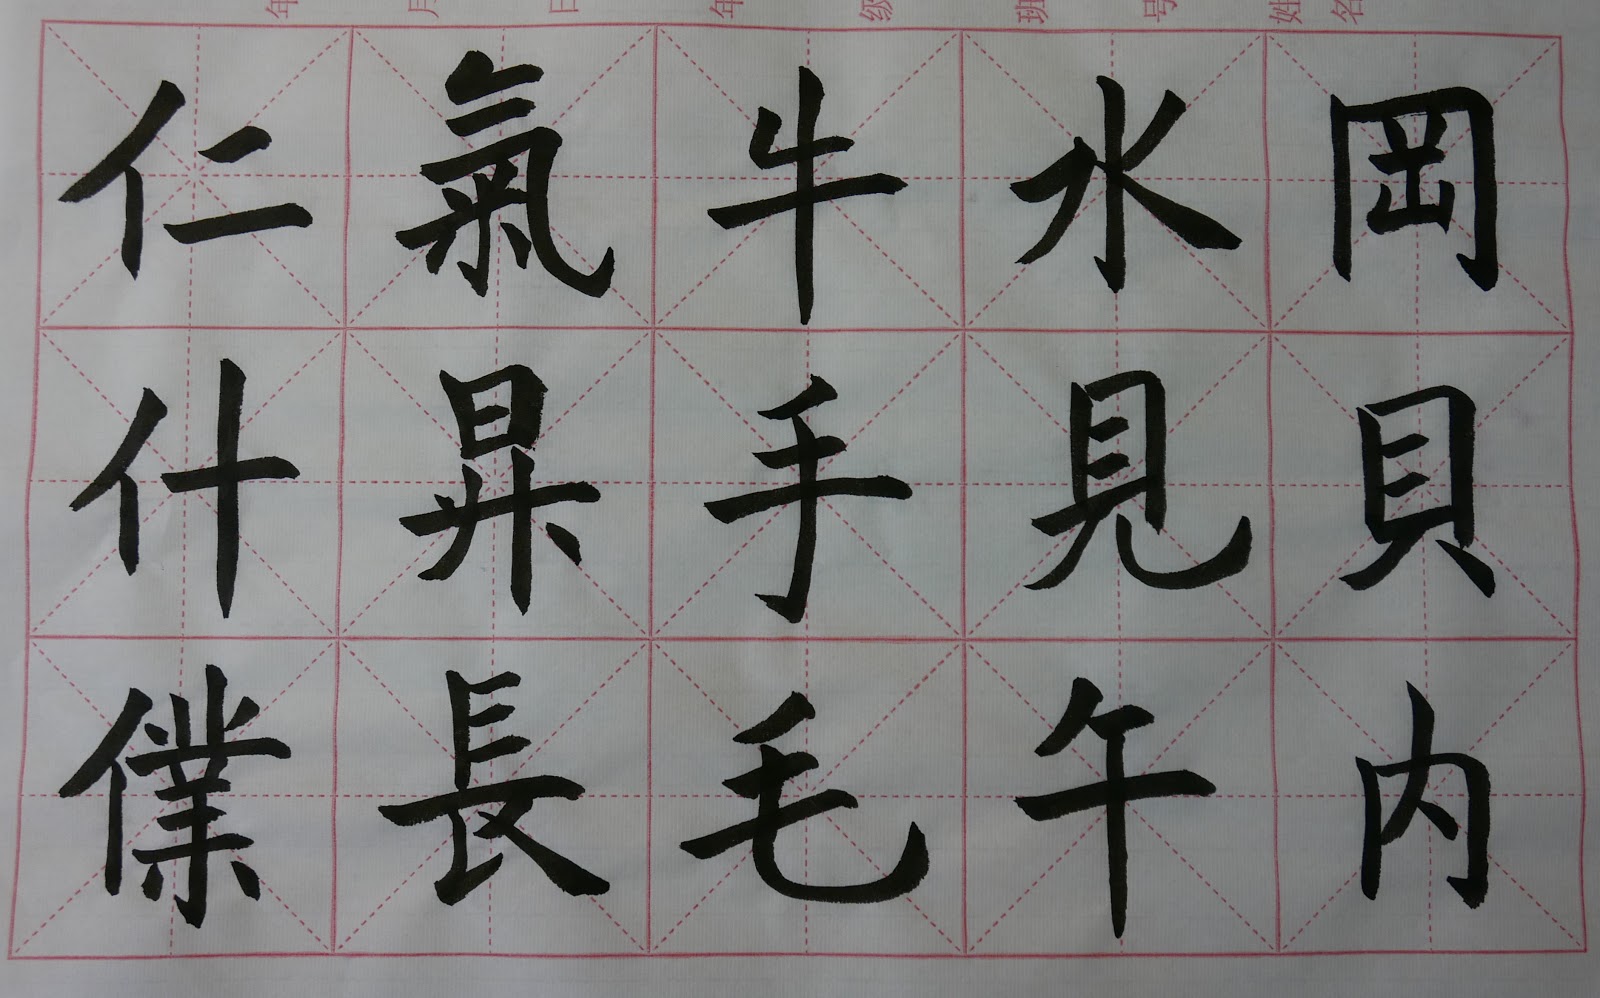 年 月 日 年 级 班 号 姓名
岡貝内
水見午
牛手毛
氣昇長
仁什㒒